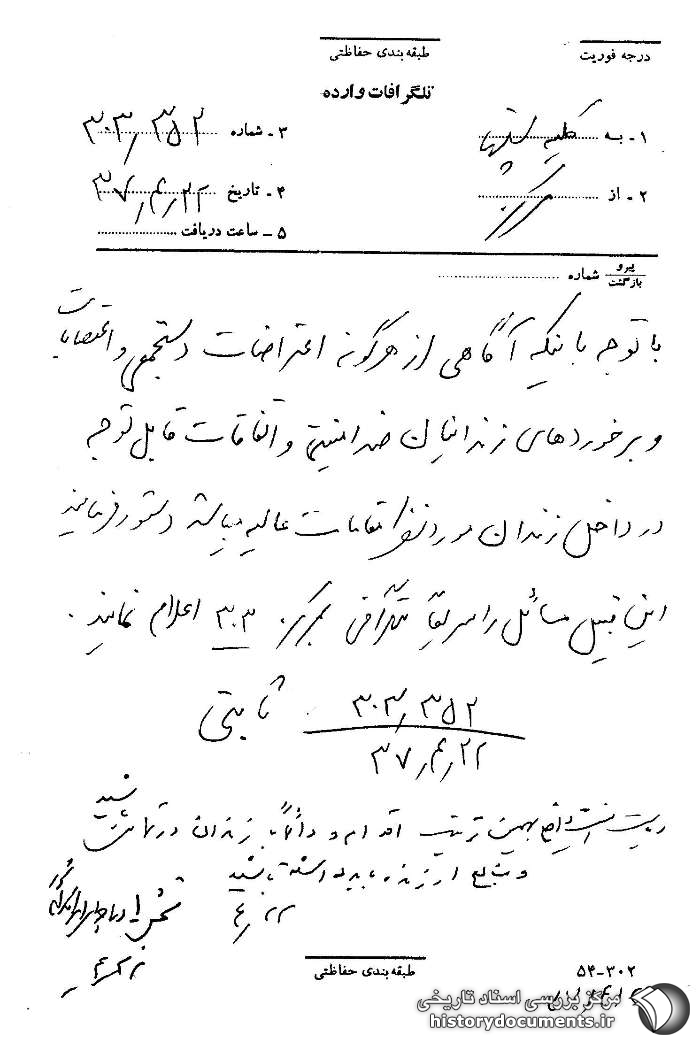 درجه فوریت
طبقه بندی حفاظتی
تلگرافات وارده
۱ - به کلیه
۳ - شماره ۳۰۳/۳۵۲
۲ - از مرکز
۴ - تاریخ ۳۷/۴/۲۲
۵ - ساعت دریافت
پیرو
بازگشت
شماره
با توجه باینکه آگاهی از هرگونه اعتراضات دستجمعی و اعتصابات
و برخوردهای زندانیان ضد امنیتی و اتفاقات قابل توجه
در داخل زندان مورد نظر مقامات عالیه میباشد دستور فرمایند
این قبیل مسائل را سریعاً تلگرافی بمرکز ۳۰۳ اعلام نمایند .
۳۰۳/۳۵۲
۳۷/۴/۲۲
ثابتی
بهمین ترتیب اقدام و دائماً با زندان در تماس باشید
و منابع
۴/۲۲
طبقه بندی حفاظتی
۵۴-۳۰۲
مرکز بررسی اسناد تاریخی
historydocuments.ir